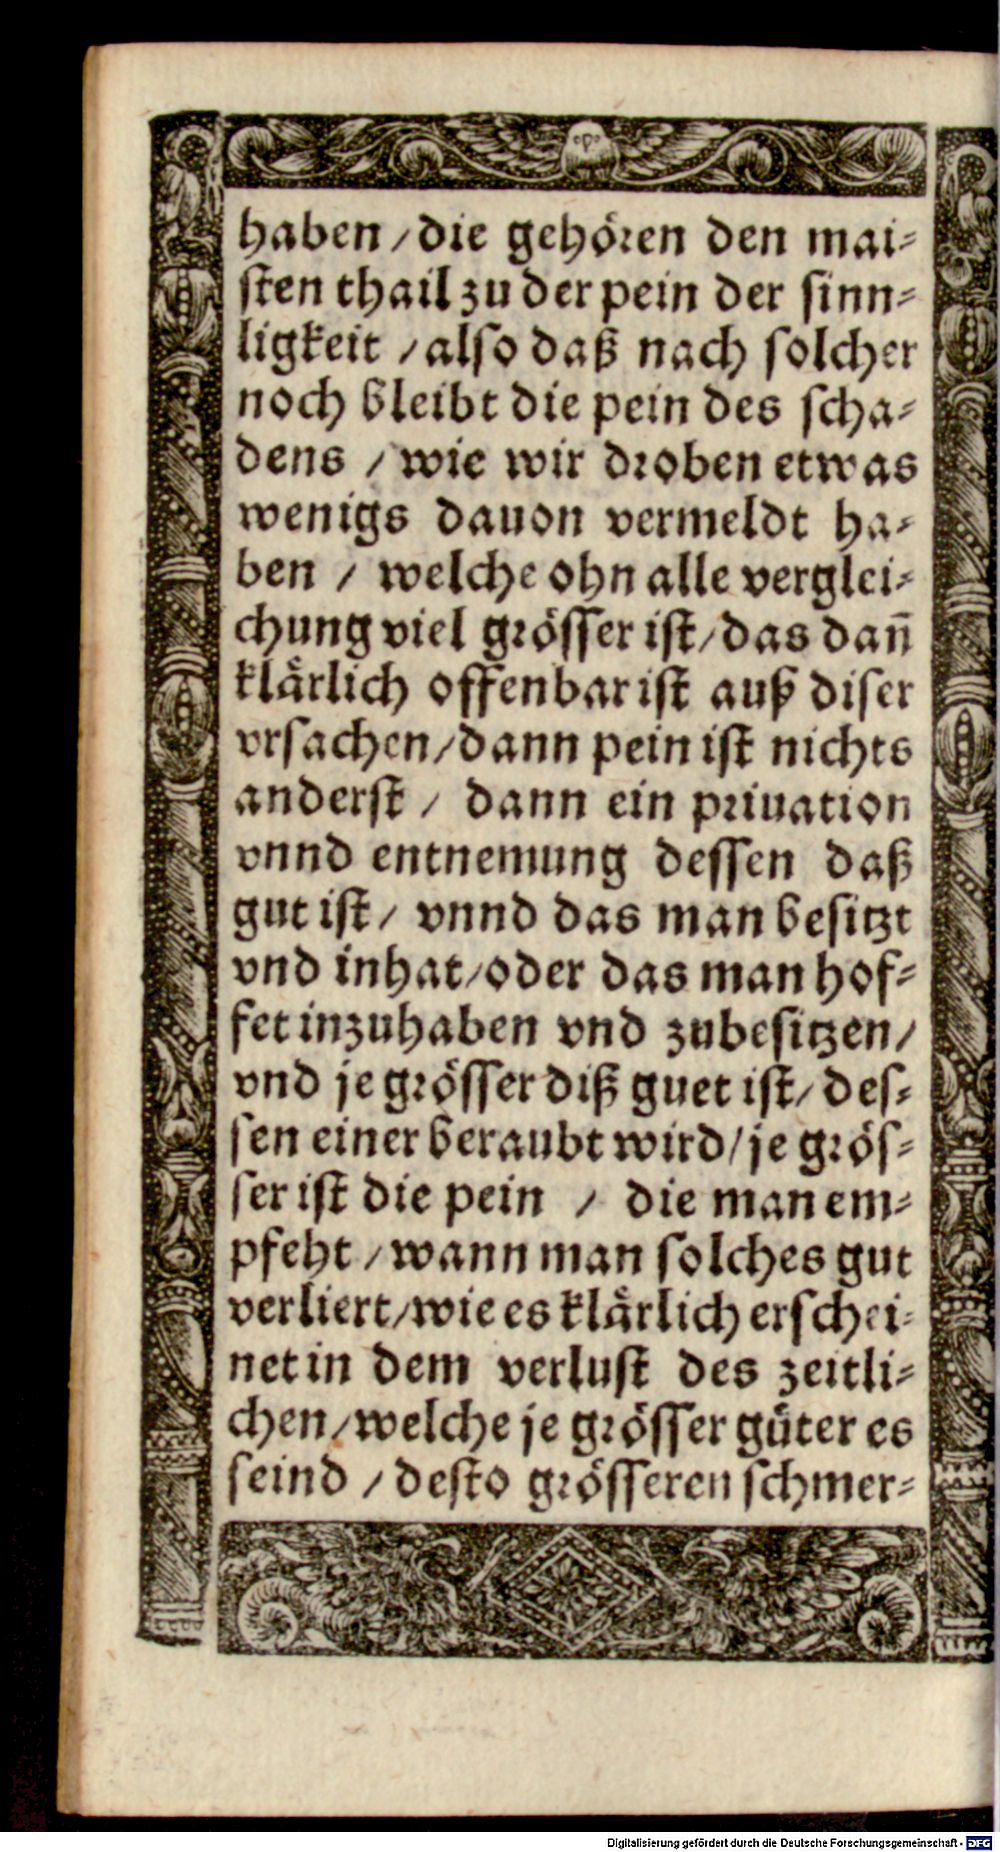 haben / die gehören den mai⸗
sten thail zu der pein der sinn⸗
ligkeit / also daß nach solcher
noch bleibt die pein des scha⸗
dens / wie wir droben etwas
wenigs dauon vermeldt ha⸗
ben / welche ohn alle verglei⸗
chung viel grösser ist / das dañ
klärlich offenbar ist auß diser
vrsachen / dann pein ist nichts
anderst / dann ein priuation
vnnd entnemung dessen daß
gut ist / vnnd das man besitzt
vnd inhat / oder das man hof⸗
fet inzuhaben vnd zubesitzen /
vnd je grösser diß guet ist / des⸗
sen einer beraubt wird / je grös⸗
ser ist die pein / die man em⸗
pfeht / wann man solches gut
verliert / wie es klärlich erschei⸗
net in dem verlust des zeitli⸗
chen / welche je grösser güter es
seind / desto grösseren schmer⸗
Digitalisierung gefördert durch die Deutsche Forschungsgemeinschaft - DFG